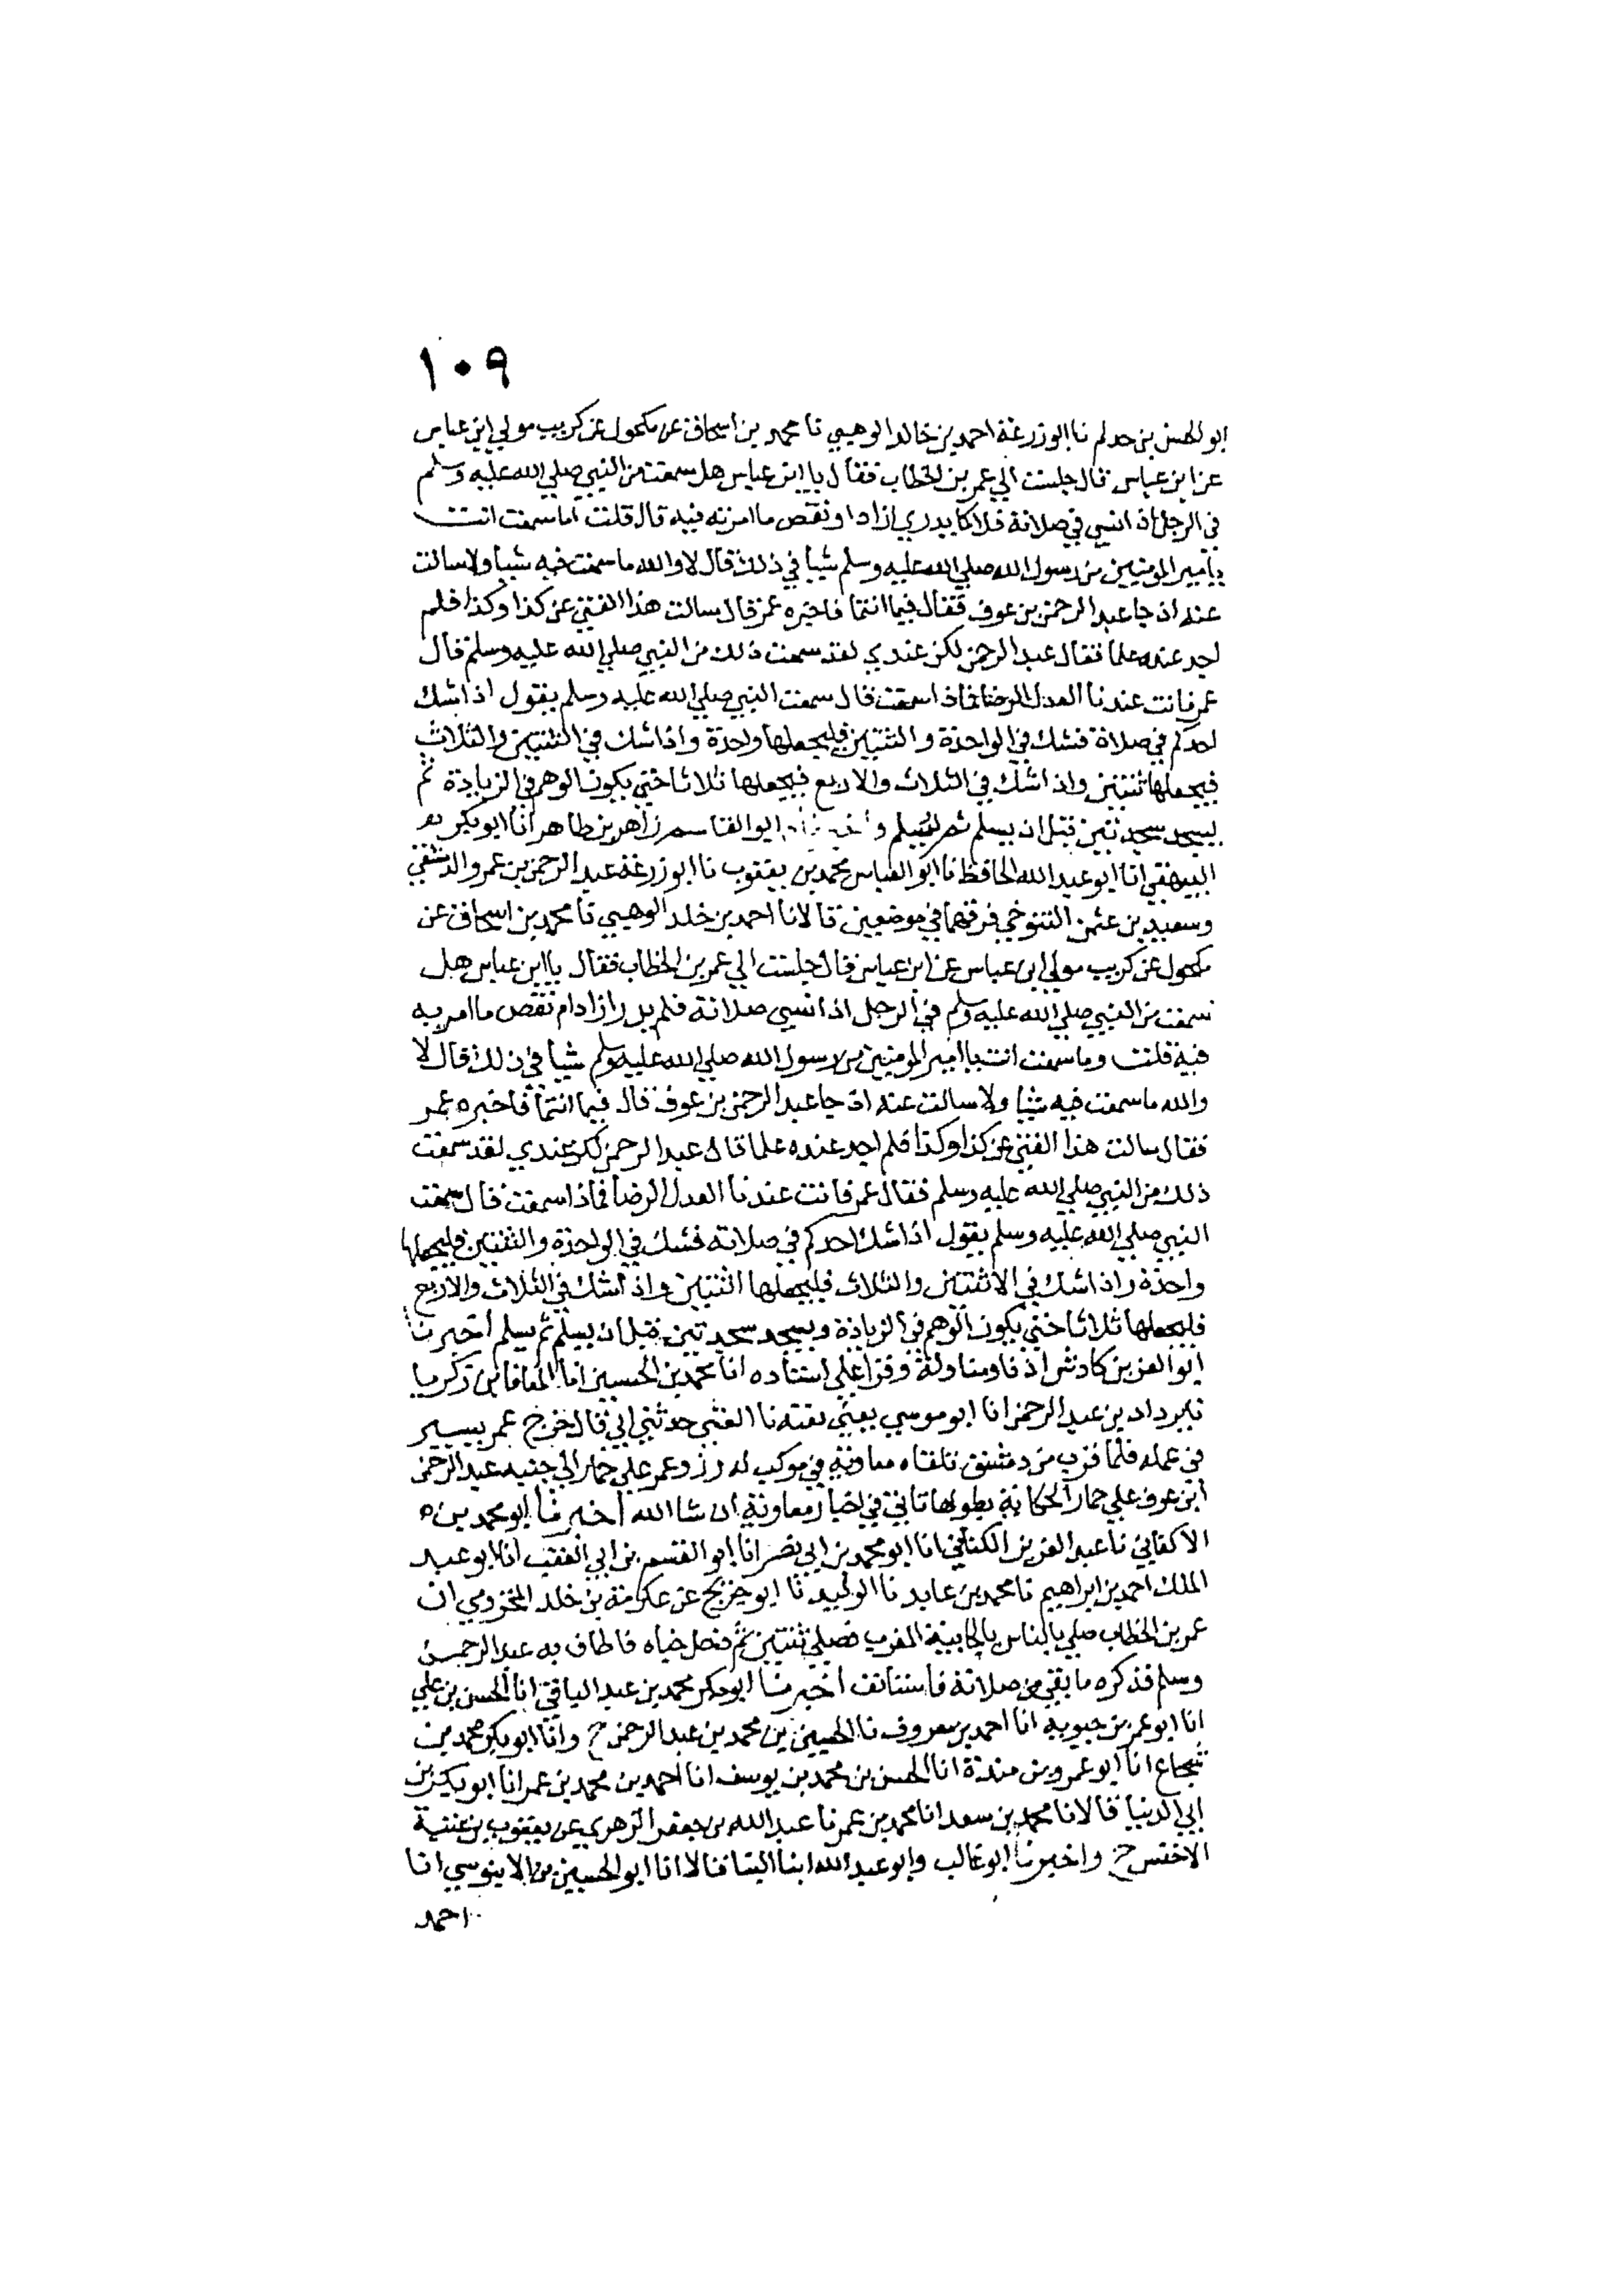 ١٠٩
ابو الحسن بن حدلم نا ابو زرعة احمد بن خالد الوهبي نا محمد بن اسحاق عن مكحول عن كريب مولي ابن عباس
عن ابن عباس قال جلست الي عمر بن الخطاب فقال يا ابن عباس هل سمعت من النبي صلي الله عليه وسلم
في الرجل اذا نسي في صلاته فلا يدري ازاد او نقص ما امر به فيه قال قلت اما سمعت انت
يا مير المومنين من رسول الله صلي الله عليه وسلم شيا في ذلك قال لا والله ما سمعت فيه شيا ولا سالت
عنه اذ جا عبد الرحمن بن عوف فقال فيما انتما فاخبره عمر قال سالت هذا الفتي عن كذا وكذا فلم
اجد عنده علما فقال عبد الرحمن لكن عندي لقد سمعت ذلك من النبي صلي الله عليه وسلم قال
عمر فانت عندنا العدل الرضا فماذا سمعت قال سمعت النبي صلي الله عليه وسلم يقول اذا شك
احدكم في صلاة فشك في الواحدة والثنتين فليجعلها واحدة واذا شك في الثنتين والثلاث
فيجعلها ثنتين واذا شك في الثلاث والاربع فيجعلها ثلاثا حتي يكون الوهم في الزيادة ثم
ليسجد سجدتين قبل ان يسلم ثم ليسلم ابو القاسم زاهر بن طاهر انا ابو بكر
البيهقي انا ابو عبد الله الحافظ نا ابو العباس محمد بن يعقوب نا ابو زرعة عبد الرحمن بن عمرو الدمشقي
وسعيد بن عثمن التنوخي فرقهما في موضعين قالا نا احمد بن خلد الوهبي نا محمد بن اسحاق عن
مكحول عن كريب مولي ابن عباس عن ابن عباس قال جلست الي عمر بن الخطاب فقال يا ابن عباس هل
سمعت من النبي صلي الله عليه وسلم في الرجل اذا نسي صلاته فلم يدر ازاد ام نقص ما امر به
فيه قلت وما سمعت انت يا امير المومنين من رسول الله صلي الله عليه وسلم شيا في ذلك قال لا
والله ما سمعت فيه شيا ولا سالت عنه اذ جا عبد الرحمن بن عوف قال فيما انتما فاخبره عمر
فقال سالت هذا الفتي عن كذا وكذا فلم اجد عنده علما قال عبد الرحمن لكن عندي لقد سمعت
ذلك من النبي صلي الله عليه وسلم فقال عمر فانت عندنا العدل الرضا فماذا سمعت قال سمعت
النبي صلي الله عليه وسلم يقول اذا شك احدكم في صلاته فشك في الواحدة والثنتين فليجعلها
واحدة واذا شك في الاثنتين والثلاث فليجعلها اثنتين واذا شك في الثلاث والاربع
فليجعلها ثلاثا حتي يكون الوهم في الزيادة ويسجد سجدتين قبل ان يسلم ثم يسلم اخبرنا
ابو العز بن كادش اذنا ومناولة وقرا علي اسناده انا محمد بن الحسين انا المعافا بن زكريا
يزداد بن عبد الرحمن انا ابو موسي يعني نا العتبي حدثني ابي قال خرج عمر يسير
في عمله فلما قرب من دمشق تلقاه معاوية في موكب له رز وعمر علي حمار الي جنبه عبد الرحمن
ابن عوف علي حمار الحكاية بطولها تاتي في اخبار معاوية ان شا الله اخبرنا ابو محمد بن
الاكفاني نا عبد العزيز الكتاني انا ابو محمد بن ابي نصر انا ابو القسم بن ابي العقب انا ابو عبد
الملك احمد بن ابراهيم نا محمد بن عايد نا الوليد نا ابو جريج عن عكرمة بن خلد المخزومي ان
عمر بن الخطاب صلي بالناس بالجابية المغرب فصلي ثنتين ثم دخل خباه فاطاف به عبد الرحمن
وسلم فذكره ما بقي من صلاته فاستانف اخبرنا ابو بكر محمد بن عبد الباقي انا الحسن بن علي
انا ابو عمر بن حيويه انا احمد بن معروف نا الحسين بن محمد بن عبد الرحمن ح وانا ابو بكر محمد بن
شجاع انا ابو عمرو بن مندة انا الحسن بن محمد بن يوسف انا احمد بن محمد بن عمر انا ابو بكر بن
ابي الدنيا قالا نا محمد بن سعد انا محمد بن عمر نا عبد الله بن جعفر الزهري عن يعقوب بن عتبة
الاخنس ح واخبرنا ابو غالب وابو عبد الله ابنا البنا قالا انا ابو الحسين بن الابنوسي انا
احمد